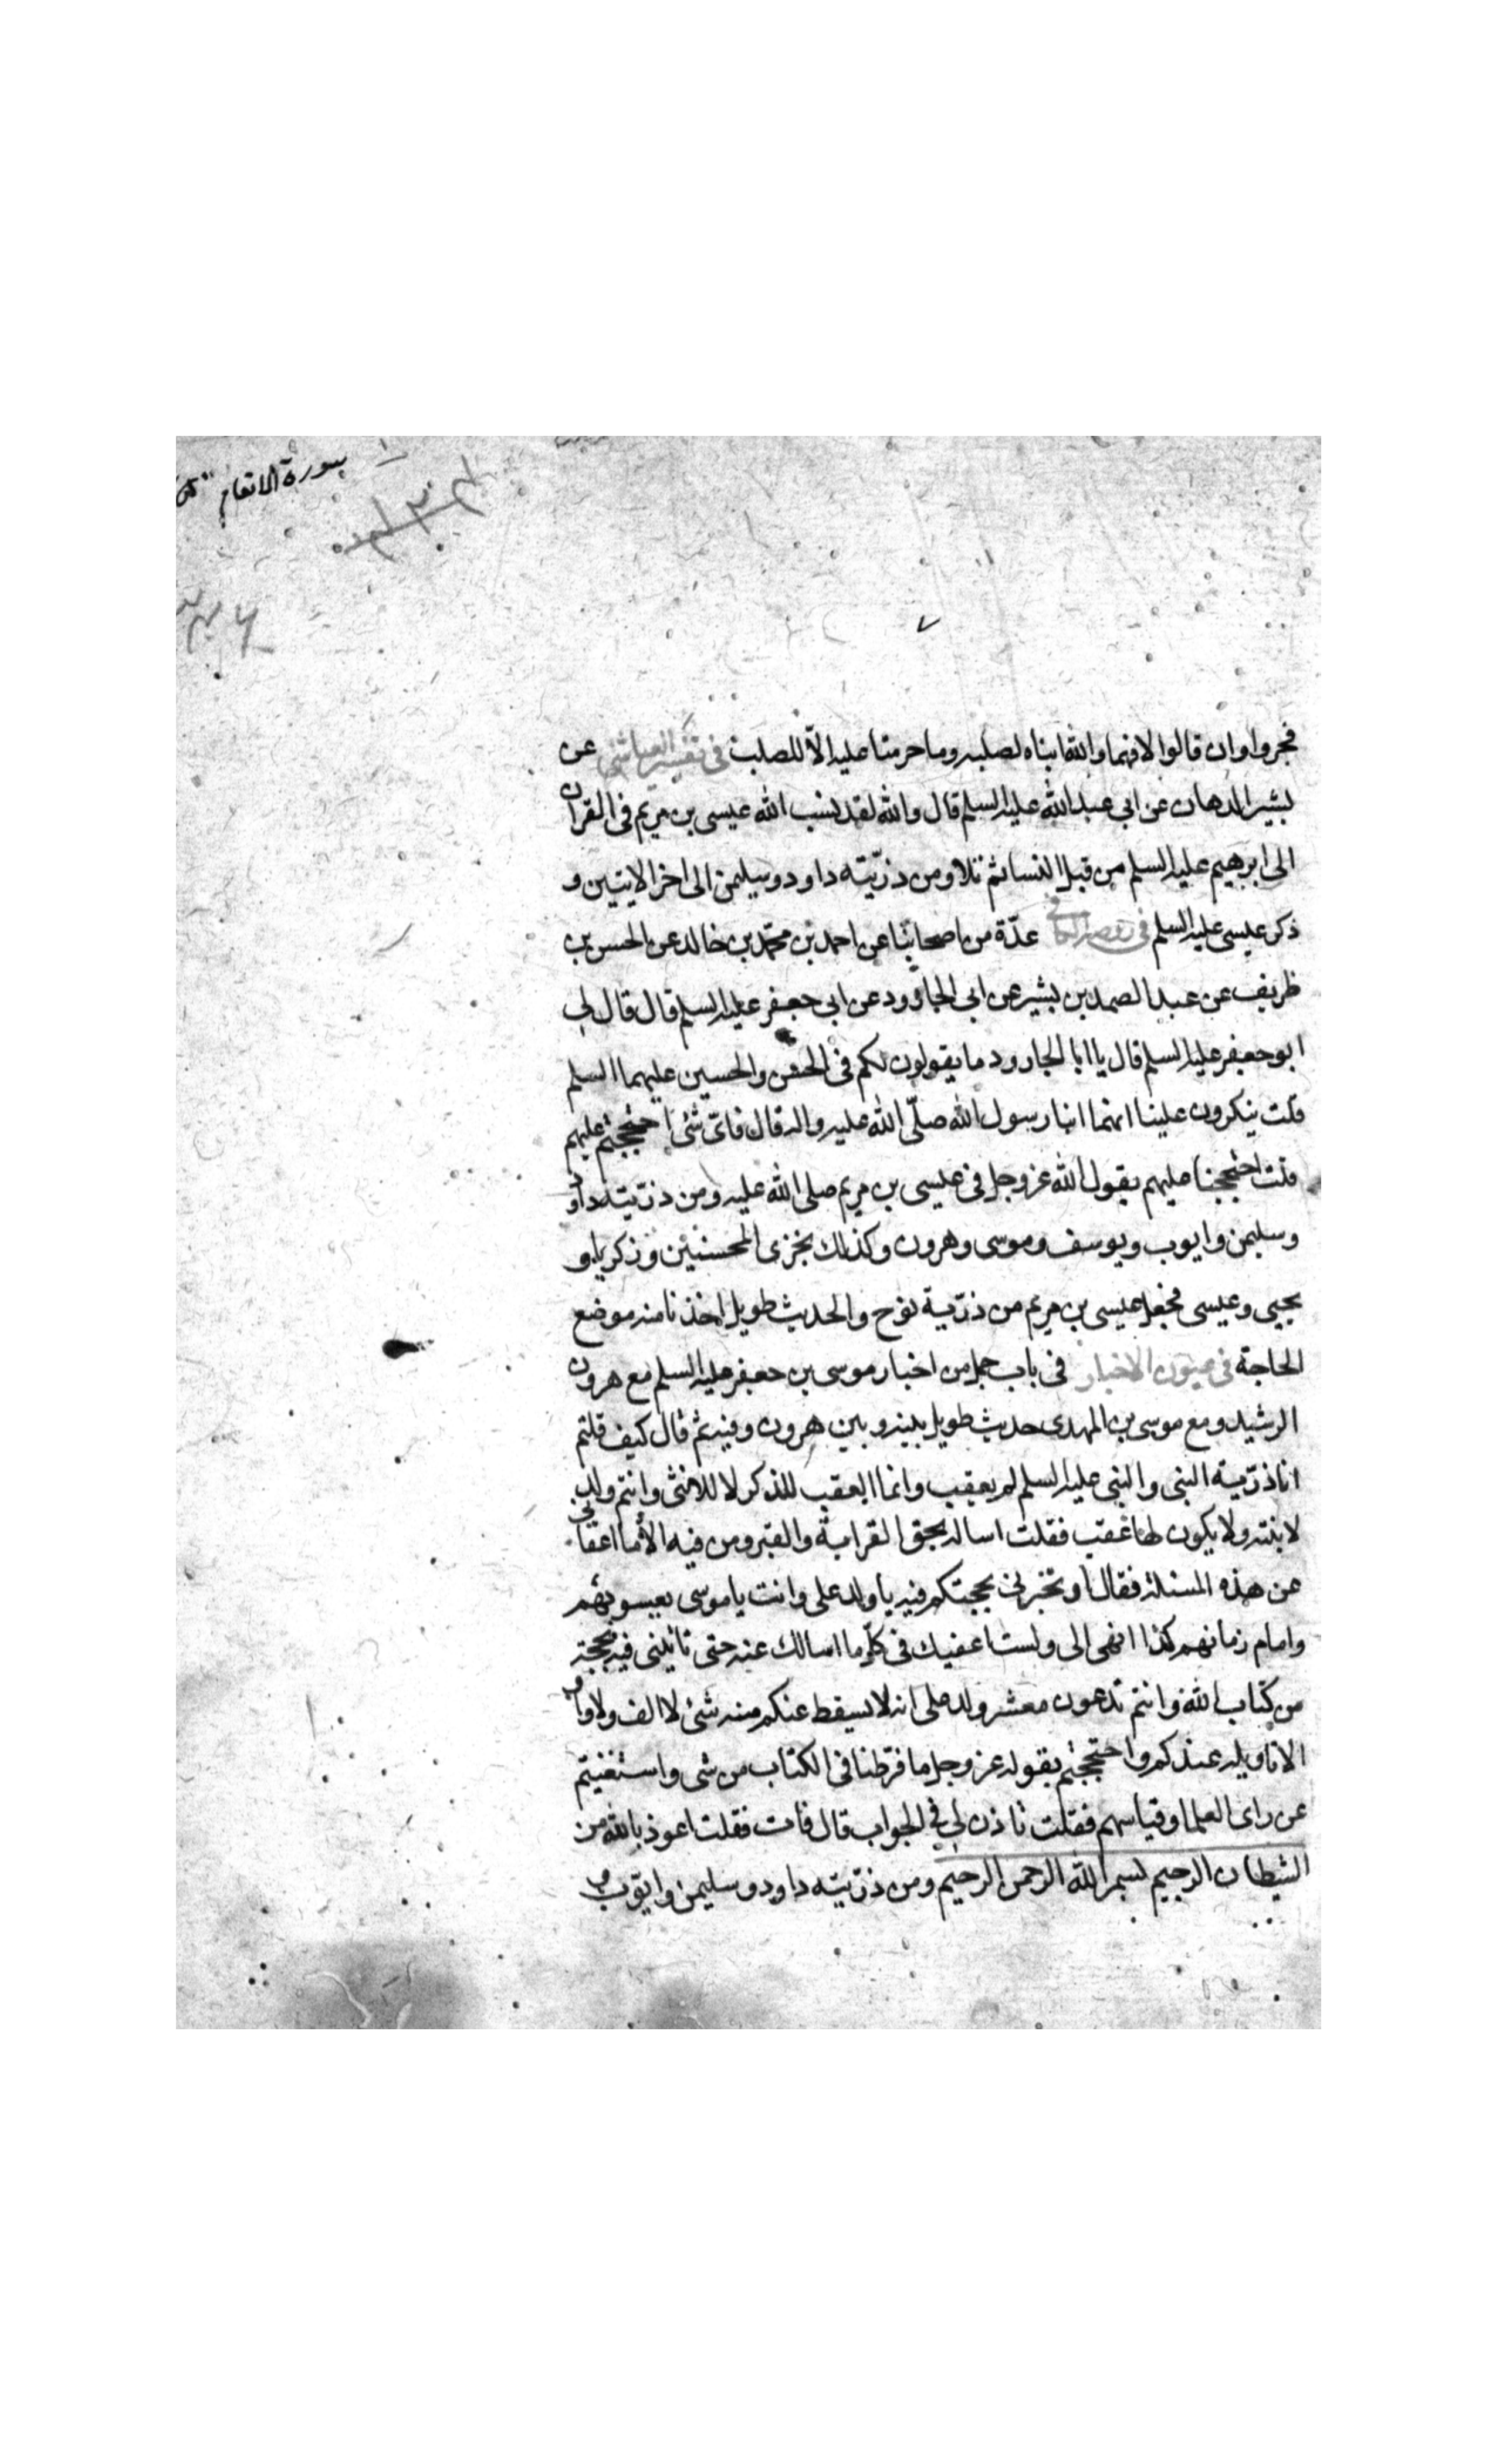 سورة الانعام
فجروا وان قالوا لا فهما والله ابناه لصلبه وما حرمتا عليه الّا للصلب في تفسير العياشي عن
بشير الدهان عن ابي عبد الله عليه السلم قال والله لقد نسب الله عيسى بن مريم في القران
الى ابرهيم عليه السلم من قبل النسا ثم تلا ومن ذرّيته داود وسليمن الى اخر الايتين و
ذكر عيسى عليه السلم في روضة الكافي عدّة من اصحابنا عن احمد بن محمّد بن خالد عن الحسن بن
ظريف عن عبد الصمد بن بشير عن ابي الجارود عن ابي جعفر عليه السلم قال قال لي
ابو جعفر عليه السلم قال يا ابا الجارود ما يقولون لكم في الحسن والحسين عليهما السلم
قلت ينكرون علينا انهما ابنا رسول الله صلّى الله عليه واله قال فاىّ شئ احتججتم عليهم
قلت احتججنا عليهم بقول الله عز وجل في عيسى بن مريم صلى الله عليه ومن ذرّيته داود
وسليمن وايوب ويوسف وموسى وهرون وكذلك نجزى المحسنين وزكريا و
يحيى وعيسى فجعل عيسى بن مريم من ذرّية نوح والحديث طويل اخذنا منه موضع
الحاجة في عيون الاخبار في باب جمل من اخبار موسى بن جعفر عليه السلم مع هرون
الرشيد ومع موسى بن المهدى حديث طويل بينه وبين هرون وفيه ثم قال كيف قلتم
انا ذرّية النبى والنبى عليه السلم لم يعقب وانما العقب للذكر لا للانثى وانتم ولد
لابنته ولا يكون لها عقب فقلت اساله بحق القرابة والقبر ومن فيه الّا ما اعفانى
عن هذه المسئلة فقال او تخبرنى بحجتكم فيه يا ولد على وانت يا موسى يعسوبهم
وامام زمانهم كذا انهى الى ولست اعفيك في كلّ ما اسالك عنه حتى تاتينى فيه بحجة
من كتاب الله وانتم تدعون معشر ولد على انه لا يسقط عنكم منه شئ لا الف ولا واو
الا تاويله عندكم واحتججتم بقوله عز وجل ما فرّطنا فى الكتاب من شى واستغنيتم
عن راى العلما وقياسهم فقلت تاذن لي في الجواب قال هات فقلت اعوذ بالله من
الشيطان الرجيم بسم الله الرحمن الرحيم ومن ذرّيته داود وسليمن وايّوب